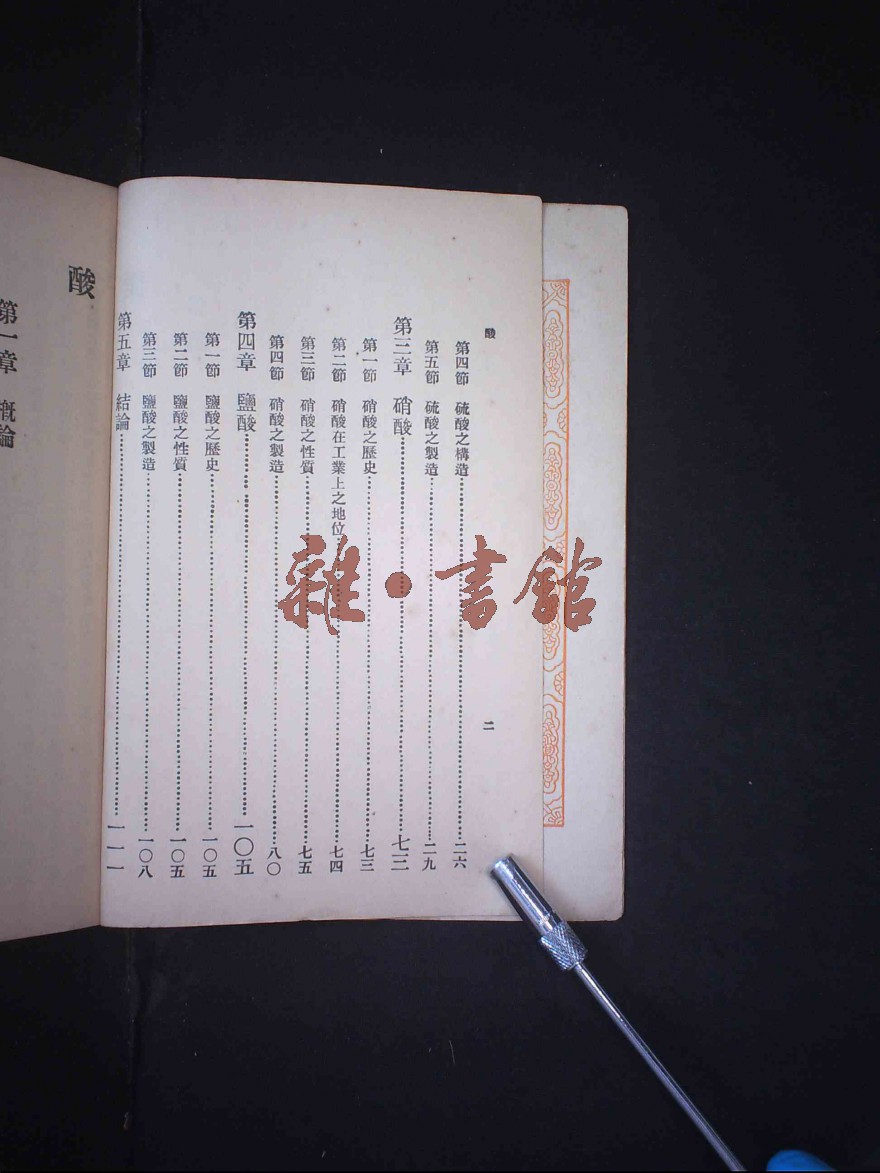 酸
二
第四節 硫酸之構造 二六
第五節 硫酸之製造 二九
第三章 硝酸 七三
第一節 硝酸之歷史 七三
第二節 硝酸在工業上之地位 七四
第三節 硝酸之性質 七五
第四節 硝酸之製造 八〇
第四章 鹽酸 一〇五
第一節 鹽酸之歷史 一〇五
第二節 鹽酸之性質 一〇五
第三節 鹽酸之製造 一〇八
第五章 結論 一一一
酸
第一章 概論
雜·書館